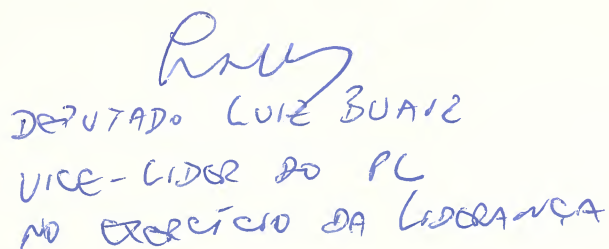 DEPUTADO LUIZ BUAIZ
VICE-LIDER DO PL
NO EXERCÍCIO DA LIDERANÇA